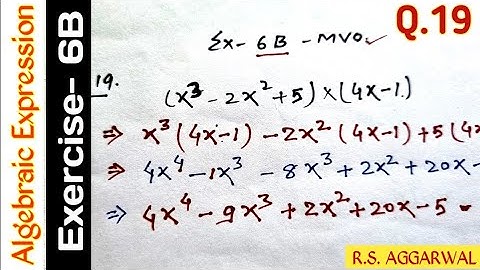 Algebraic Expression
Exercise- 6B
Q.19
Ex- 6B - MVO
19.
(x³ - 2x² + 5) × (4x-1)
⇒ x³(4x-1) - 2x²(4x-1) + 5(4x
⇒ 4x⁴ - 1x³ - 8x³ + 2x² + 20x -
⇒ 4x⁴ - 9x³ + 2x² + 20x - 5
R.S. AGGARWAL